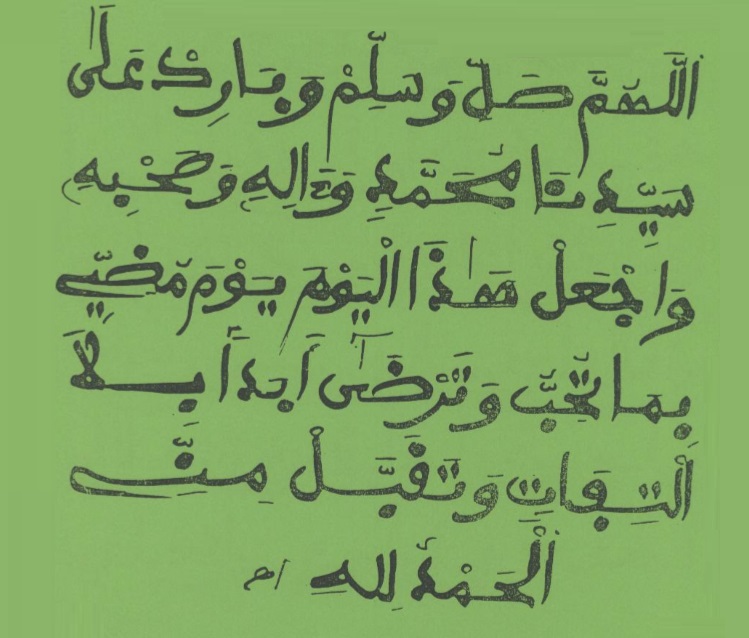 اللَّهُمَّ صَلِّ وَسَلِّمْ وَبَارِكْ عَلَى
سَيِّدِنَا مُحَمَّدٍ وَءَالِهِ وَصَحْبِهِ
وَاجْعَلْ هَٰذَا الْيَوْمَ يَوْمَ مُّضِيِّ
بِمَا تُحِبُّ وَتَرْضَىٰ أَبَدًا بِلَا
الْتِفَاتٍ وَتَقَبَّلْ مِنِّي
الْحَمْدُ لِلهِ اهـ